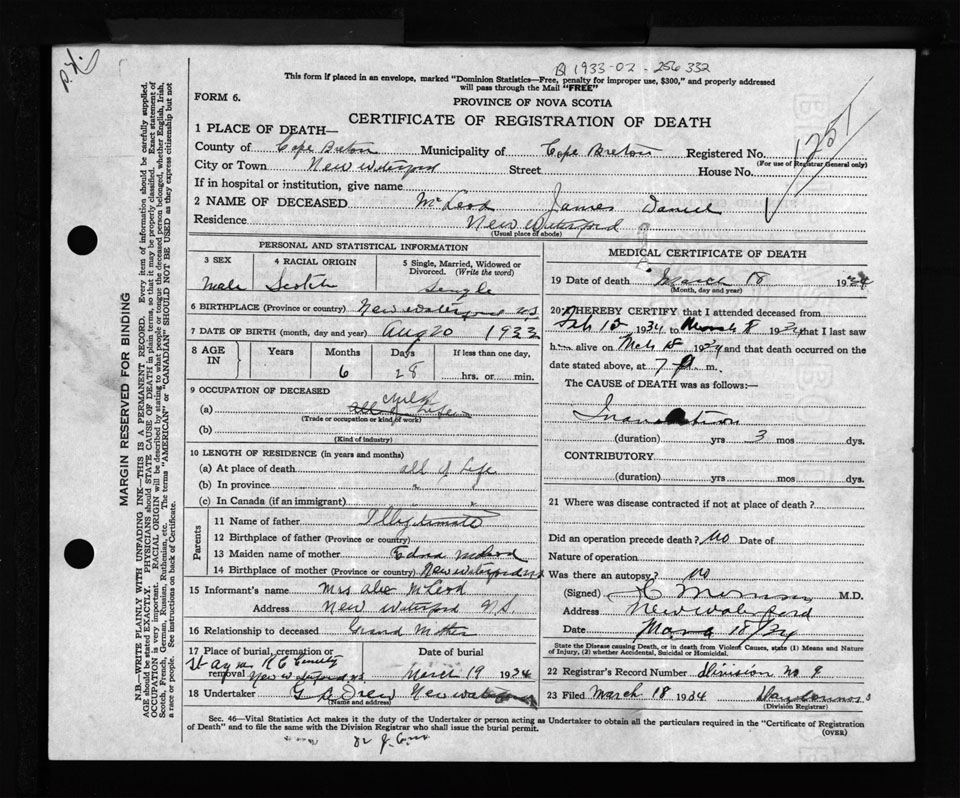 B1 1933-02-256332
This form if placed in an envelope, marked "Dominion Statistics—Free, penalty for improper use, $300," and properly addressed
will pass through the Mail "FREE"
FORM 6.
PROVINCE OF NOVA SCOTIA
CERTIFICATE OF REGISTRATION OF DEATH
1251
MARGIN RESERVED FOR BINDING
N.B.—WRITE PLAINLY WITH UNFADING INK—THIS IS A PERMANENT RECORD. Every item of information should be carefully supplied.
AGE should be stated EXACTLY. PHYSICIANS should STATE CAUSE OF DEATH in plain terms, so that it may be properly classified. Exact statement of
OCCUPATION is very important. RACIAL ORIGIN will be described by stating to what people or tongue the deceased person belonged, whether English, Irish,
Scotch, French, German, Russian, Ruthenian, etc. The terms "AMERICAN" or "CANADIAN" SHOULD NOT BE USED as they express citizenship but not
a race or people. See instructions on back of Certificate.
1 PLACE OF DEATH—
County of Cape Breton Municipality of Cape Breton Registered No.
(For use of Registrar General only)
City or Town New Waterford Street House No.
If in hospital or institution, give name
2 NAME OF DECEASED McLeod James Daniel
Residence New Waterford
(Usual place of abode)
PERSONAL AND STATISTICAL INFORMATION
3 SEX 4 RACIAL ORIGIN 5 Single, Married, Widowed or
Divorced. (Write the word)
Male Scotch Single
6 BIRTHPLACE (Province or country) New Waterford N.S.
7 DATE OF BIRTH (month, day and year) Aug 20 1933
8 AGE IN Years Months Days If less than one day,
6 28 hrs. or min.
9 OCCUPATION OF DECEASED
(a) child
(Trade or occupation or kind of work)
(b)
(Kind of industry)
10 LENGTH OF RESIDENCE (in years and months)
(a) At place of death all of life
(b) In province "
(c) In Canada (if an immigrant)
Parents
11 Name of father Illigitimate
12 Birthplace of father (Province or country)
13 Maiden name of mother Edna McLeod
14 Birthplace of mother (Province or country) New Waterford NS
15 Informant's name Mrs Alex McLeod
Address New Waterford N.S.
16 Relationship to deceased Grand Mother
17 Place of burial, cremation or Date of burial
removal New Waterford N.S. March 19 1934
18 Undertaker Drew New Waterford
(Name and address)
MEDICAL CERTIFICATE OF DEATH
19 Date of death March 18 1934
(Month, day and year)
20 I HEREBY CERTIFY, that I attended deceased from
1934 to 1934 that I last saw
h alive on Mch 18 1934 and that death occurred on the
date stated above, at 7 m.
The CAUSE of DEATH was as follows:
Inanition
(duration) yrs 3 mos dys.
CONTRIBUTORY
(duration) yrs mos dys.
21 Where was disease contracted if not at place of death?
Did an operation precede death? No Date of
Nature of operation
Was there an autopsy? no
(Signed) M.D.
Address New Waterford
Date March 18/34
State the Disease causing Death, or in death from Violent Causes, state (1) Means and Nature
of Injury, (2) whether Accidental, Suicidal or Homicidal.
22 Registrar's Record Number division no 9
23 Filed March 18 1934
(Division Registrar)
Sec. 46—Vital Statistics Act makes it the duty of the Undertaker or person acting as Undertaker to obtain all the particulars required in the "Certificate of Registration
of Death" and to file the same with the Division Registrar who shall issue the burial permit.
(OVER)